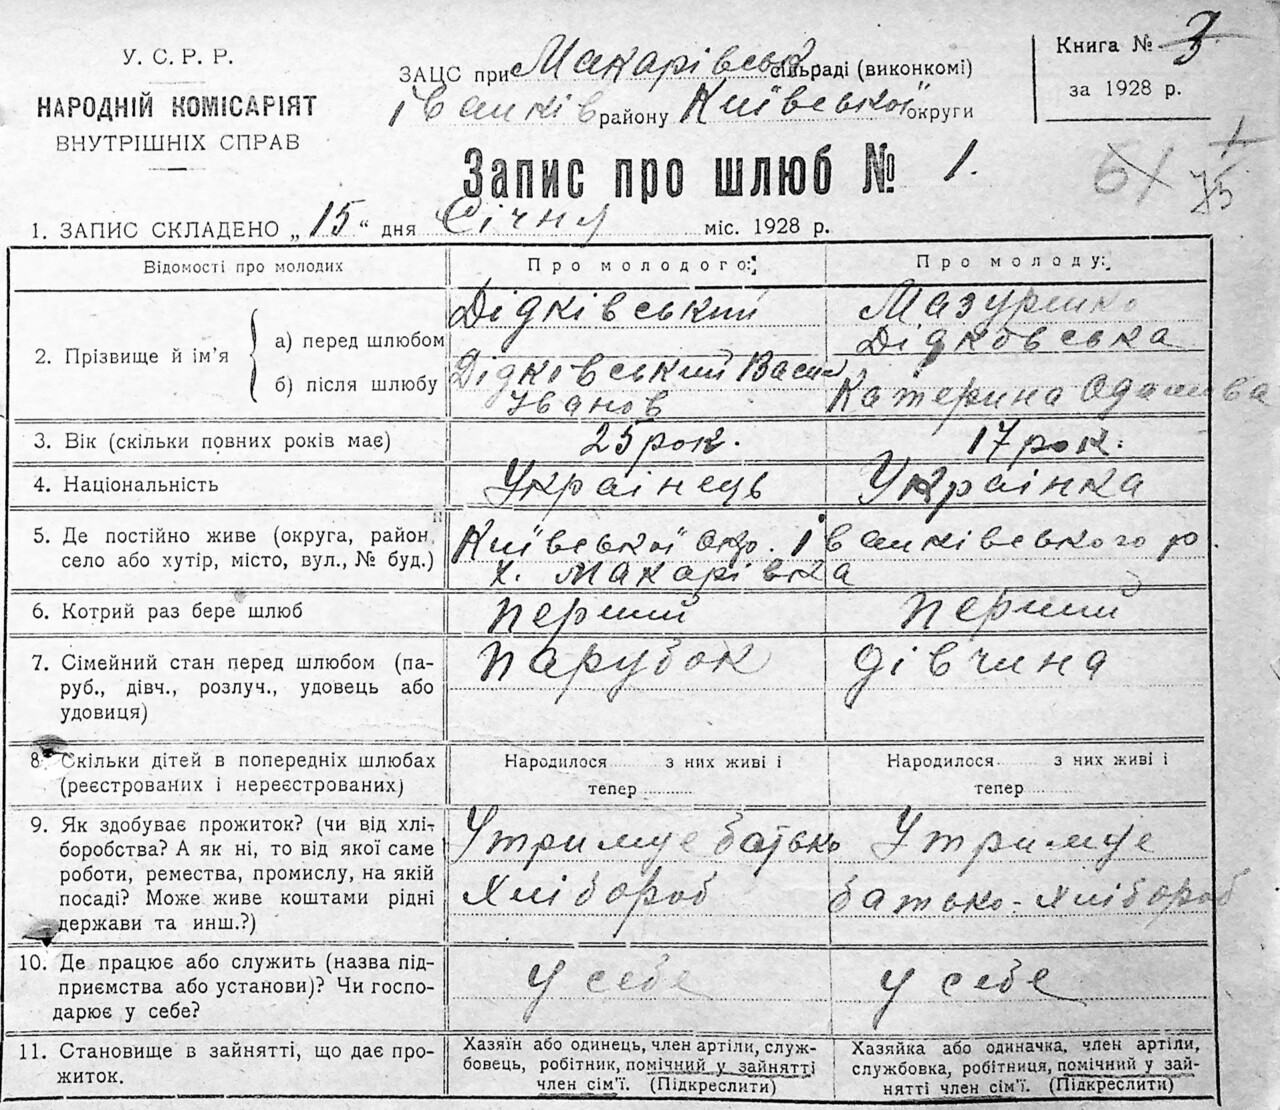 У. С. Р. Р.
НАРОДНІЙ КОМІСАРІЯТ
ВНУТРІШНІХ СПРАВ
ЗАЦС при Макарівськ сільраді (виконкомі)
Іванків району Київської округи
Книга № 3
за 1928 р.
Запис про шлюб № 1.
61
75
1. ЗАПИС СКЛАДЕНО „15“ дня Січня міс. 1928 р.
Відомості про молодих
Про молодого:
Про молоду:
2. Прізвище й ім’я
а) перед шлюбом
б) після шлюбу
Дідківський
Дідковський Васил
Іванов
Мазуренко
Дідковська
Катерина Адамова
3. Вік (скільки повних років має)
25 рок.
17 рок.
4. Національність
Українець
Українка
5. Де постійно живе (округа, район,
село або хутір, місто, вул., № буд.)
Київської окр. Іванківського р.
х. Макарівка
6. Котрий раз бере шлюб
перший
перший
7. Сімейний стан перед шлюбом (па-
руб., дівч., розлуч., удовець або
удовиця)
парубок
дівчина
8. Скільки дітей в попередніх шлюбах
(реєстрованих і нереєстрованих)
Народилося з них живі і
тепер
Народилося з них живі і
тепер
9. Як здобуває прожиток? (чи від хлі-
боробства? А як ні, то від якої саме
роботи, ремества, промислу, на якій
посаді? Може живе коштами рідні
держави та инш.?)
Утримує батько
хлібороб
Утримує
батько - хлібороб
10. Де працює або служить (назва під-
приємства або установи)? Чи госпо-
дарює у себе?
у себе
у себе
11. Становище в зайнятті, що дає про-
житок.
Хазяїн або одинець, член артіли, служ-
бовець, робітник, помічний у зайнятті
член сім’ї. (Підкреслити)
Хазяйка або одиначка, член артіли,
службовка, робітниця, помічний у зай-
нятті член сім’ї. (Підкреслити)